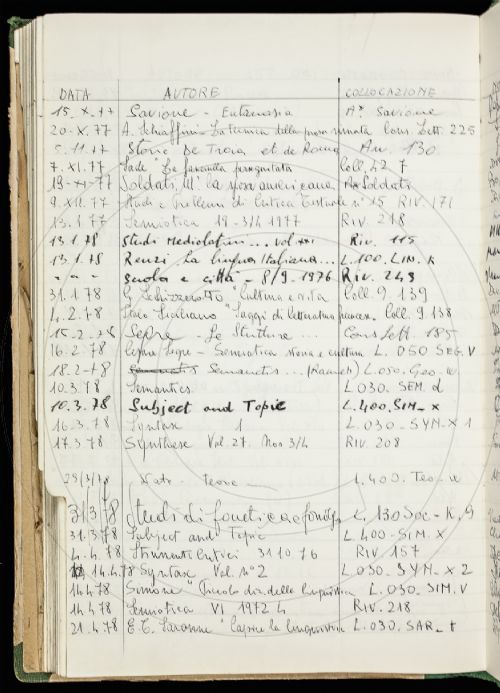 DATA AUTORE COLLOCAZIONE
15. X. 77 Savione - Eutanasia Aº Savione
20. X. 77 A. Schiaffini - La tecnica della prosa rimata Cons. Lett. 225
5. 11. 77 Storie de Troia et de Roma An. 130
7. XI. 77 Sade "La fanciulla perseguitata Coll. 42 7
19 - XI - 77 Soldati, M. la sposa americana Soldati
9. XII. 77 Studi e Problemi di Critica Testuale nº 15 RIV. 171
13. 1 77 Semiotica 19 - 3/4 1977 RIV. 218
13. 1. 78 Studi Mediolatini... Vol. XXI Riv. 115
13. 1. 78 Renzi, La lingua italiana... L. 100. LIN. K
" - " - " Scuola e città - 8/9 - 1976 Riv. 243
31. 1 78 Cultura e vita Coll. 9 139
4. 2. 78 Italo Siciliano "Saggi di letteratura francese Coll. 9. 138
15 - 2 - 78 Segre - Le Strutture ... Cons Lett. 185
16. 2. 78 Segre - Semiotica storia e cultura L. 050 SEG. V
18. 2 - 78 Semantics ... L 030. Geo. α
10. 3. 78 Semantics L 030. SEM. d
10. 3. 78 Subject and Topic L. 400. SIM _ X
16. 3. 78 Syntax 1 L. 030 - SYM - X 1
17. 3 78 Synthese Vol. 27. Nos 3/4 RIV. 208
29/3/78 L. 400. Teo. α
31/3 78 Studi di fonetica e fonologia L. 130 Soc - K, 9
31. 3. 78 Subject and Topic L. 400 - SIM. X
4. 4. 78 Strumenti critici 31 10 76 RIV 157
14. 4. 78 Syntax Vol. nº 2 L 030 - SYM - X 2
14. 4 78 Simone Piccolo diz. della linguistica L. 030. SIM. V
14. 4 78 Semiotica VI 1972 4 RIV. 218
21. 4 78 "Capire la linguistica L. 030. SAR _ t